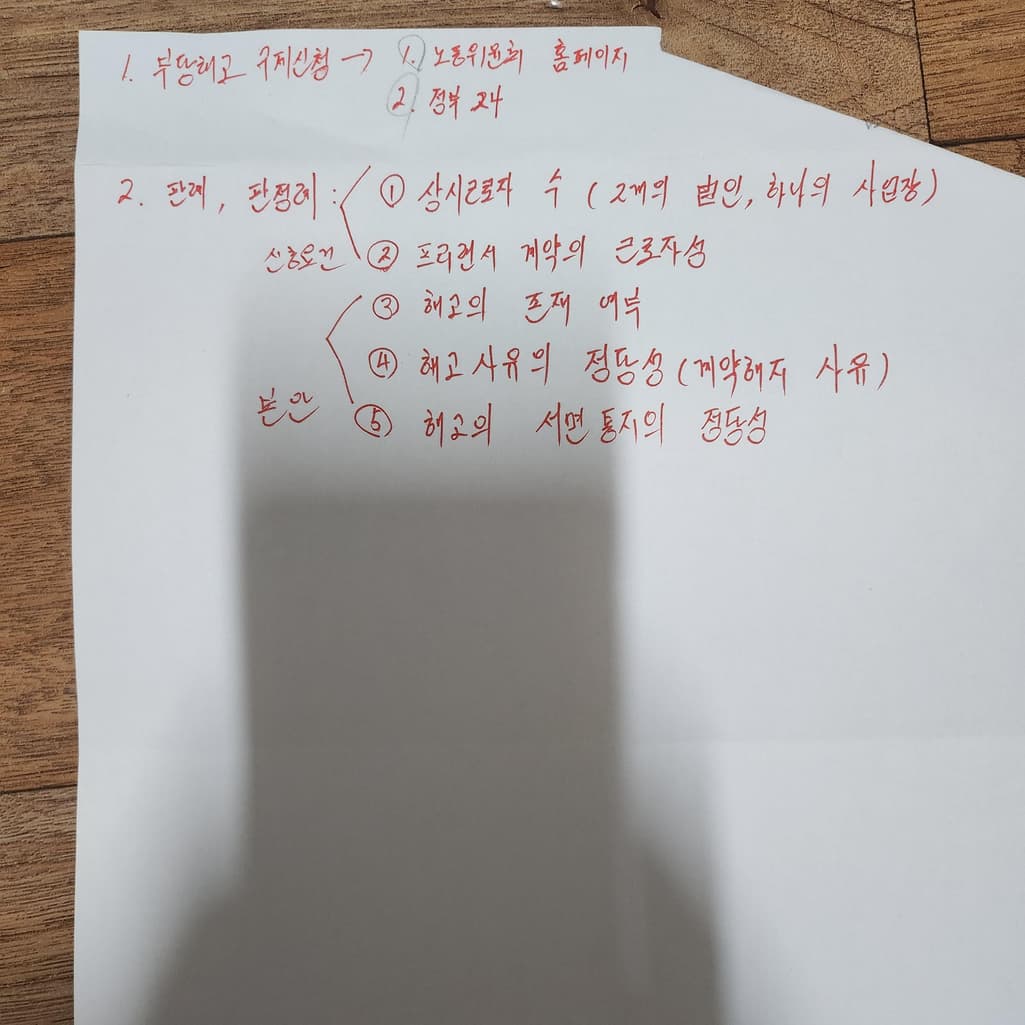 1. 부당해고 구제신청 → 1. 노동위원회 홈페이지
2. 정부 24
2. 판례, 판정례 : ① 상시근로자 수 (2개의 법인, 하나의 사업장)
신청요건 ② 프리랜서 계약의 근로자성
③ 해고의 존재 여부
④ 해고사유의 정당성 (계약해지 사유)
본안 ⑤ 해고의 서면통지의 정당성